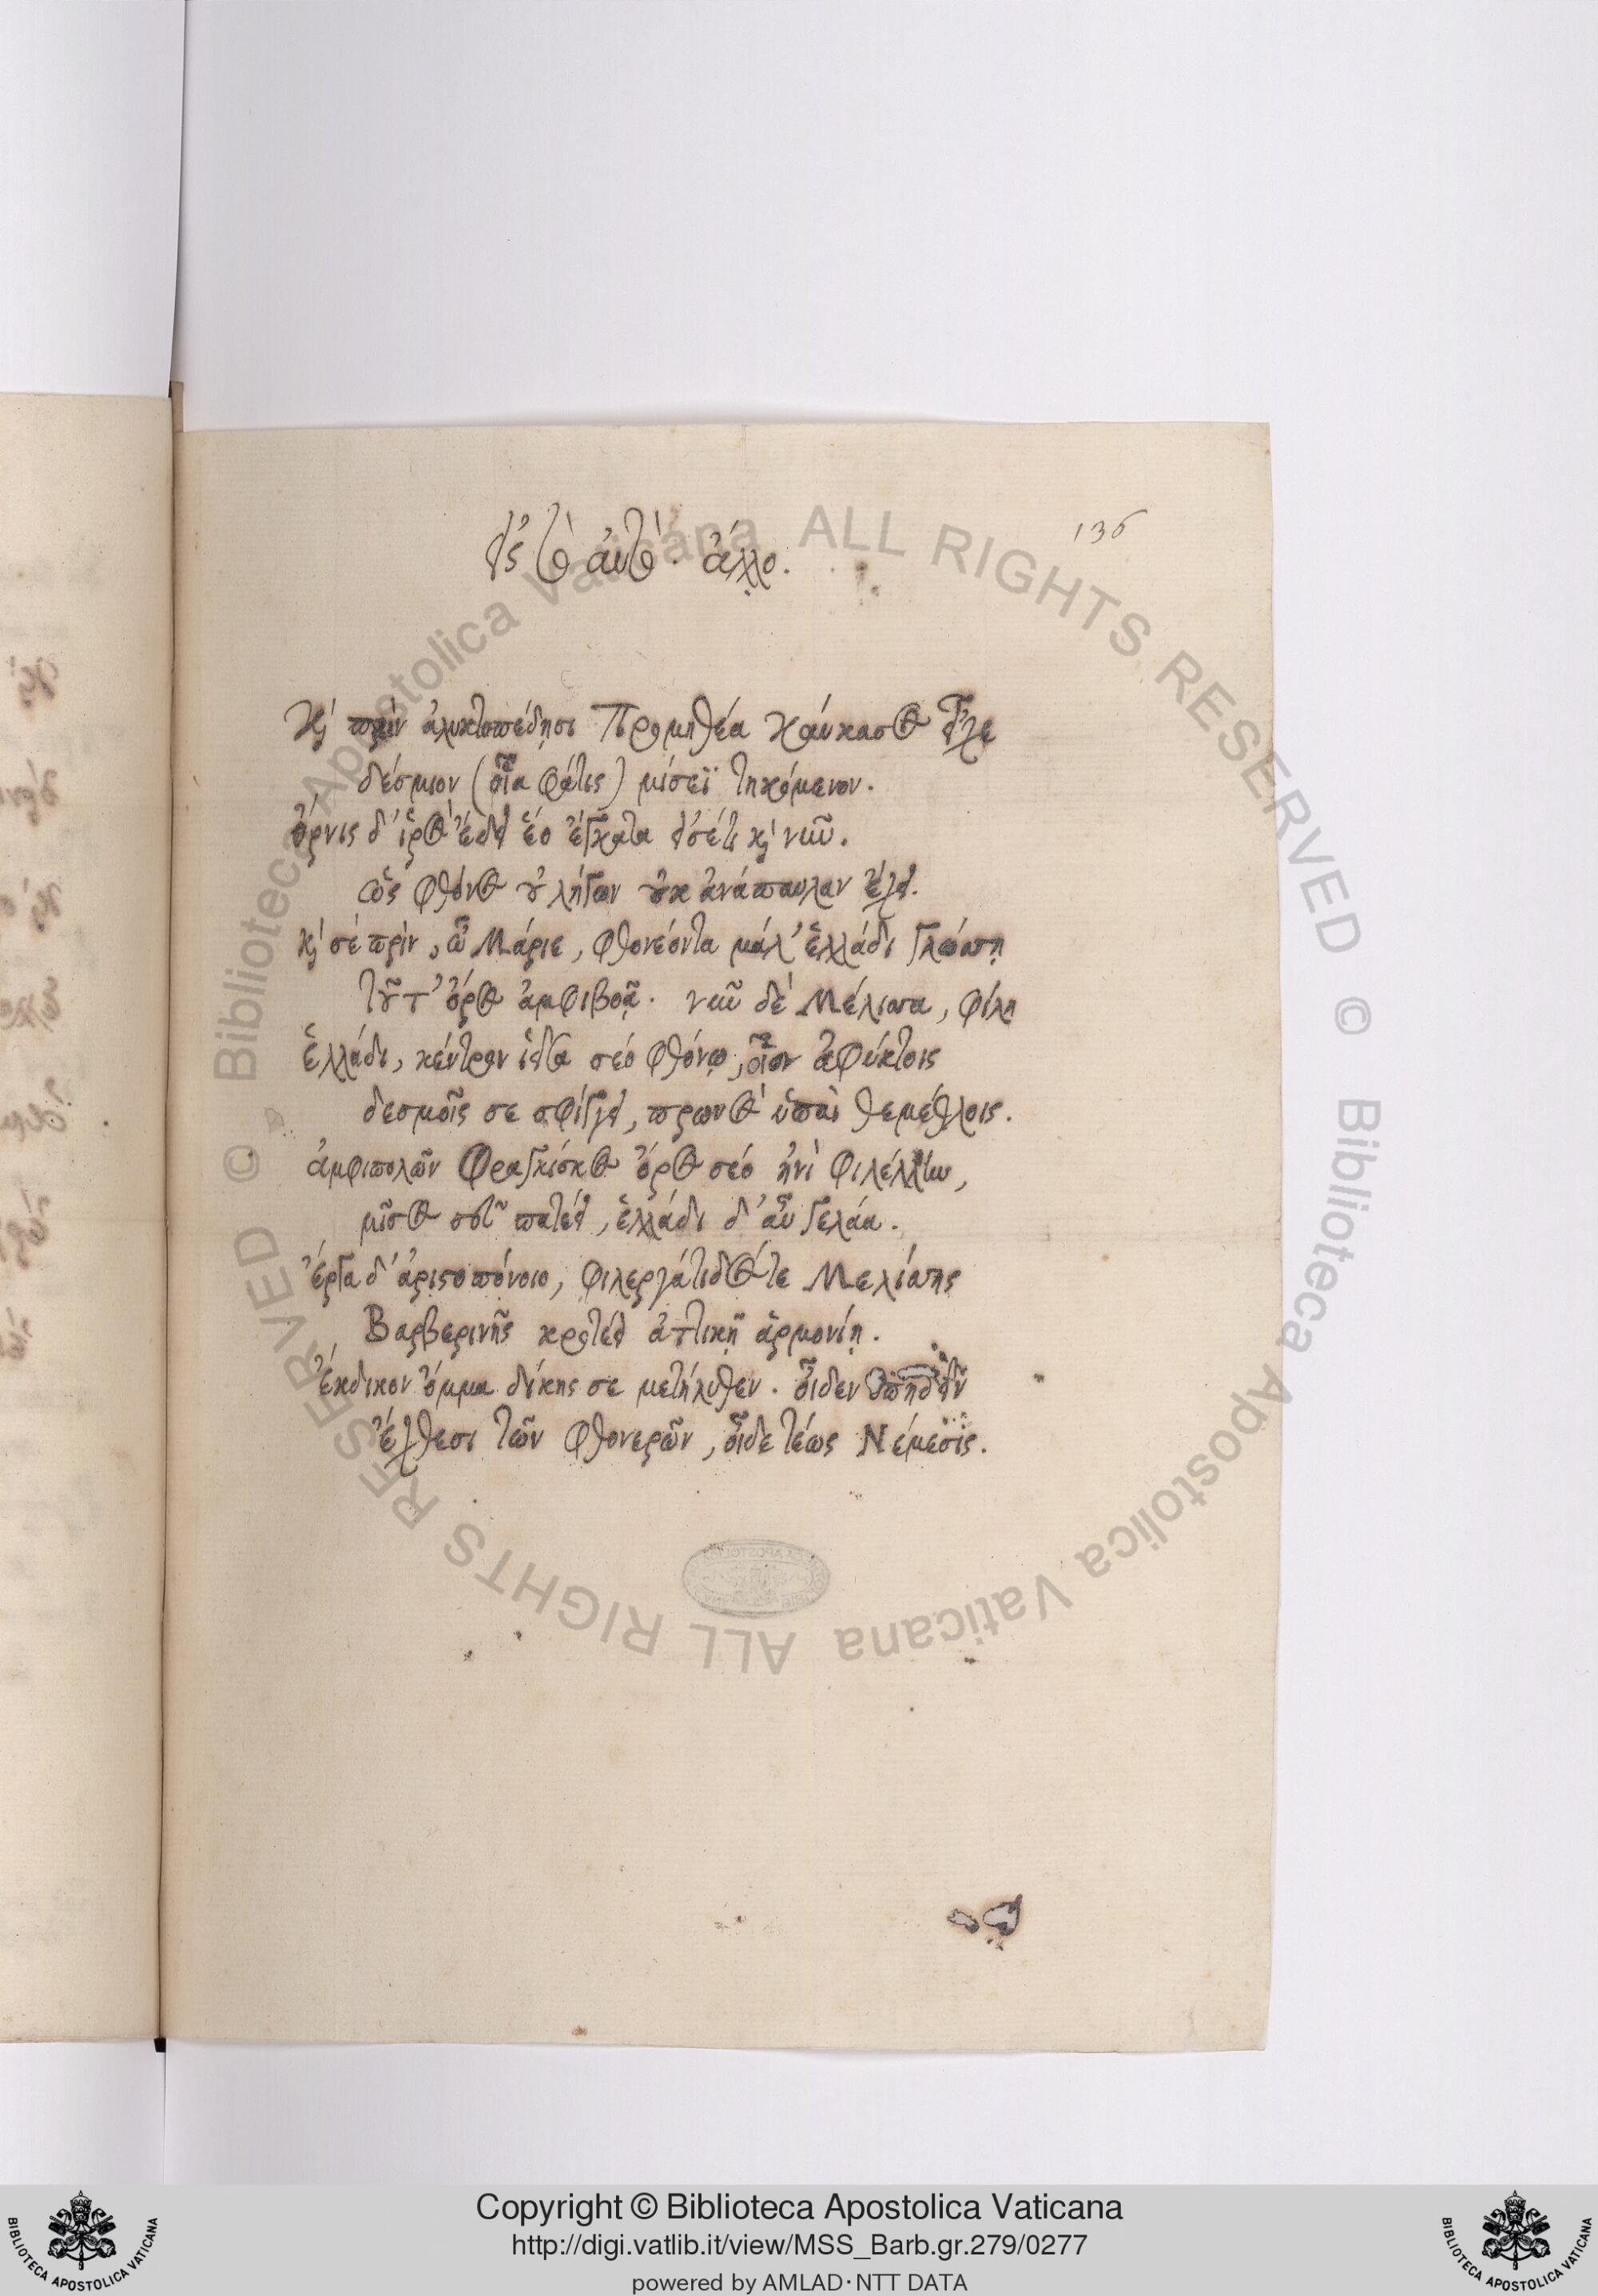 136
εἰς τὸ αὐτὸ ἄλλο.
Καὶ πρὶν ἀλυκτοπέδῃσι Προμηθέα Καύκασος εἶχε
δέσμιον (οἷα φάτις) μίσεϊ τηκόμενον.
ὄρνις δ' ἱρὸς ἔδει ἑο ἔγκατα εἰσέτι καὶ νῦν.
ὡς φθόνος οὐ λήγων οὐκ ἀνάπαυλαν ἔχει.
καὶ σὲ πρὶν, ὦ Μάριε, φθονέοντα μάλ' ἑλλάδι γλώσσῃ
τοῦτ' ὄρος ἀμφιβοᾷ. νῦν δὲ Μέλισσα, φίλη
ἑλλάδι, κέντρον σέο φθόνῳ, οἷον ἀφύκτοις
δεσμοῖς σε σφίγγει, πρωνὸς ὑπαὶ θεμέθλοις.
ἀμφιπολῶν Φραγκίσκος ὄρος σέο ἠνὶ Φιλέλλην,
μῖσος πατέει, ἑλλάδι δ' αὖ γελάᾳ.
ἔργα δ' ἀριστοπόνοιο, φιλεργάτιδός τε Μελίσσης
Βαρβερινῆς κροτέει ἀττικῇ ἁρμονίῃ.
Ἔκδικον ὄμμα δίκης σε μετήλυθεν. οἶδεν
ἔχθεσι τῶν φθονερῶν, οἶδε τέως Νέμεσις.
Copyright © Biblioteca Apostolica Vaticana
http://digi.vatlib.it/view/MSS_Barb.gr.279/0277
powered by AMLAD·NTT DATA
BIBLIOTECA APOSTOLICA VATICANA
BIBLIOTECA APOSTOLICA VATICANA
© Biblioteca Apostolica Vaticana ALL RIGHTS RESERVED
© Biblioteca Apostolica Vaticana ALL RIGHTS RESERVED